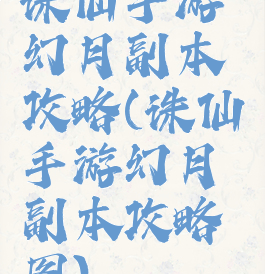 诛仙手游
幻月副本
攻略(诛仙
手游幻月
副本攻略
图)